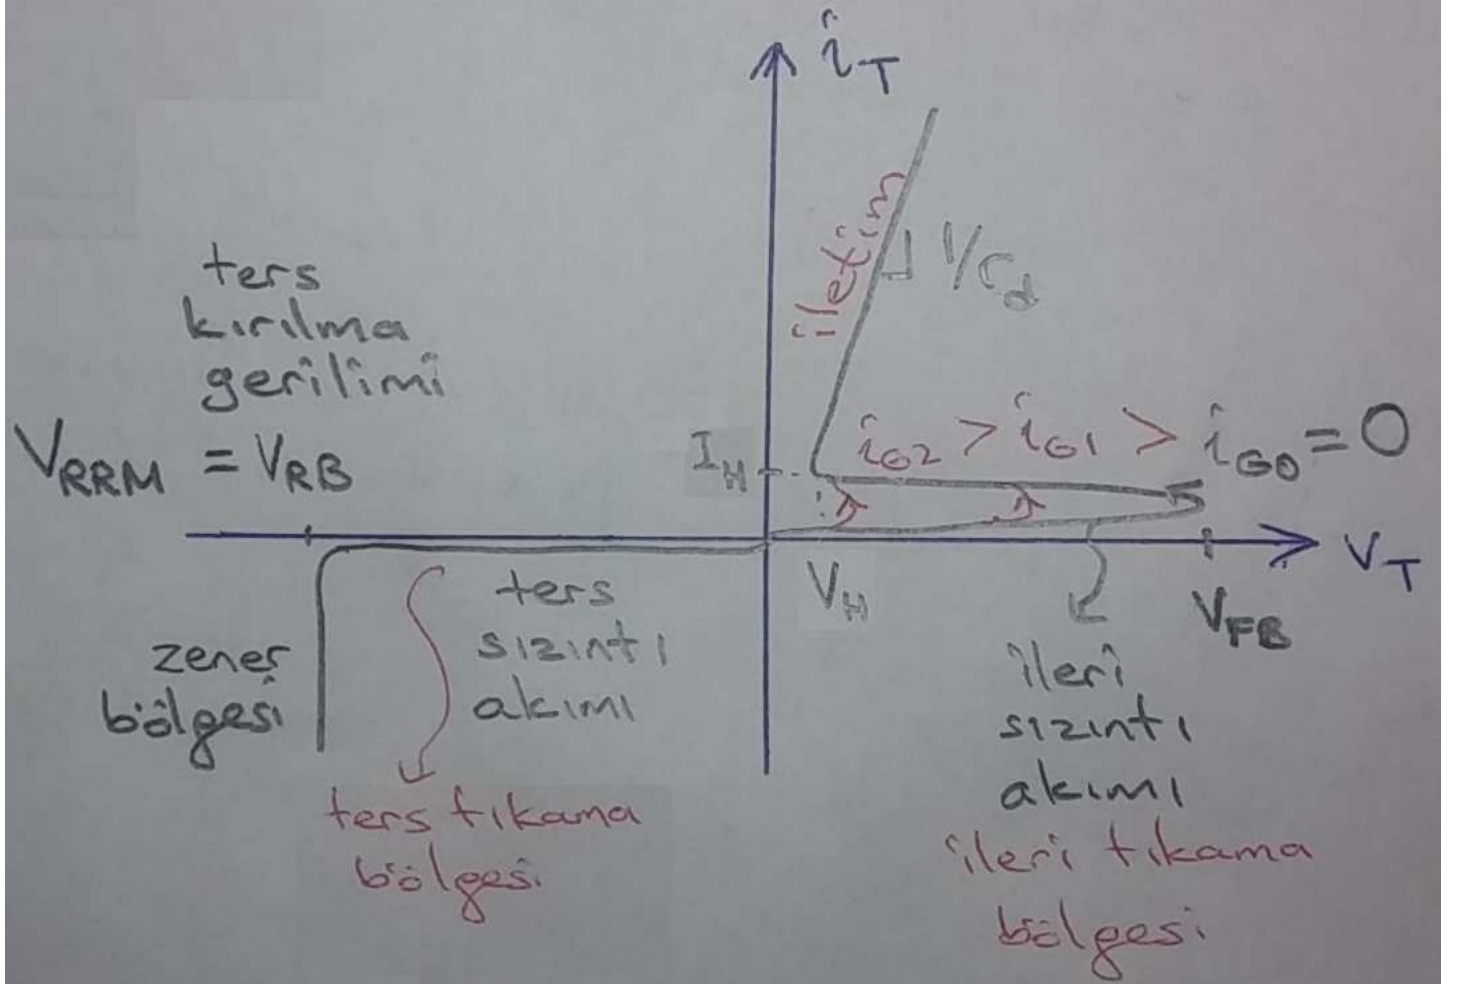 i_T
iletim
1/r_d
ters
kırılma
gerilimi
V_RRM = V_RB
I_H
i_G2 > i_G1 > i_G0 = 0
V_H
V_FB
V_T
zener
bölgesi
ters
sızıntı
akımı
ters tıkama
bölgesi
ileri
sızıntı
akımı
ileri tıkama
bölgesi